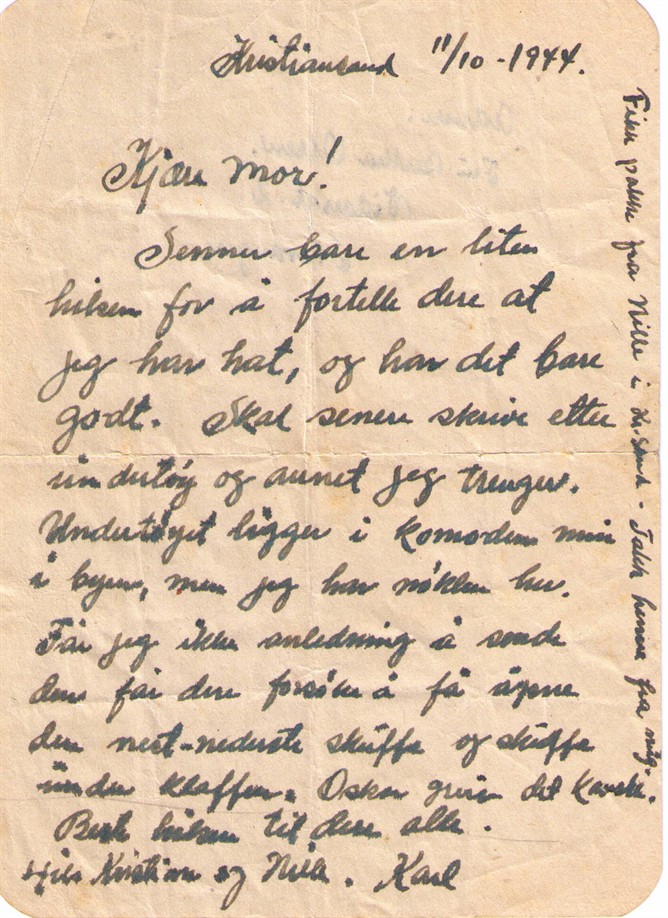 Kristiansand 11/10-1944.
Kjære mor!
Sender bare en liten
hilsen for å fortelle dere at
jeg har hat, og har det bare
godt. Skal senere skrive etter
undertøy og annet jeg trenger.
Undertøyet ligger i komoden min
i byen, men jeg har nøklen her.
Får jeg ikke anledning å sende
den får dere forsøke å få åpne
den nest-nederste skuffe og skuffe
under klaffen. Oskar greier det kanske.
Beste hilsen til dere alle.
Hils Kristian og Nille. Karl
Fikk pakke fra Nille i Kr.sand - Takk henne fra mig.